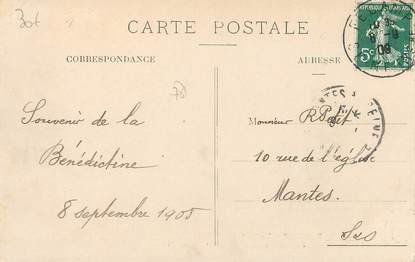 Bot
CARTE POSTALE
CORRESPONDANCE
ADRESSE
REPUBLIQUE FRANÇAISE
5c
POSTES
08
Souvenir de la
Bénédictine
8 septembre 1908
Monsieur R
10 rue de l'église
Mantes.
S&O